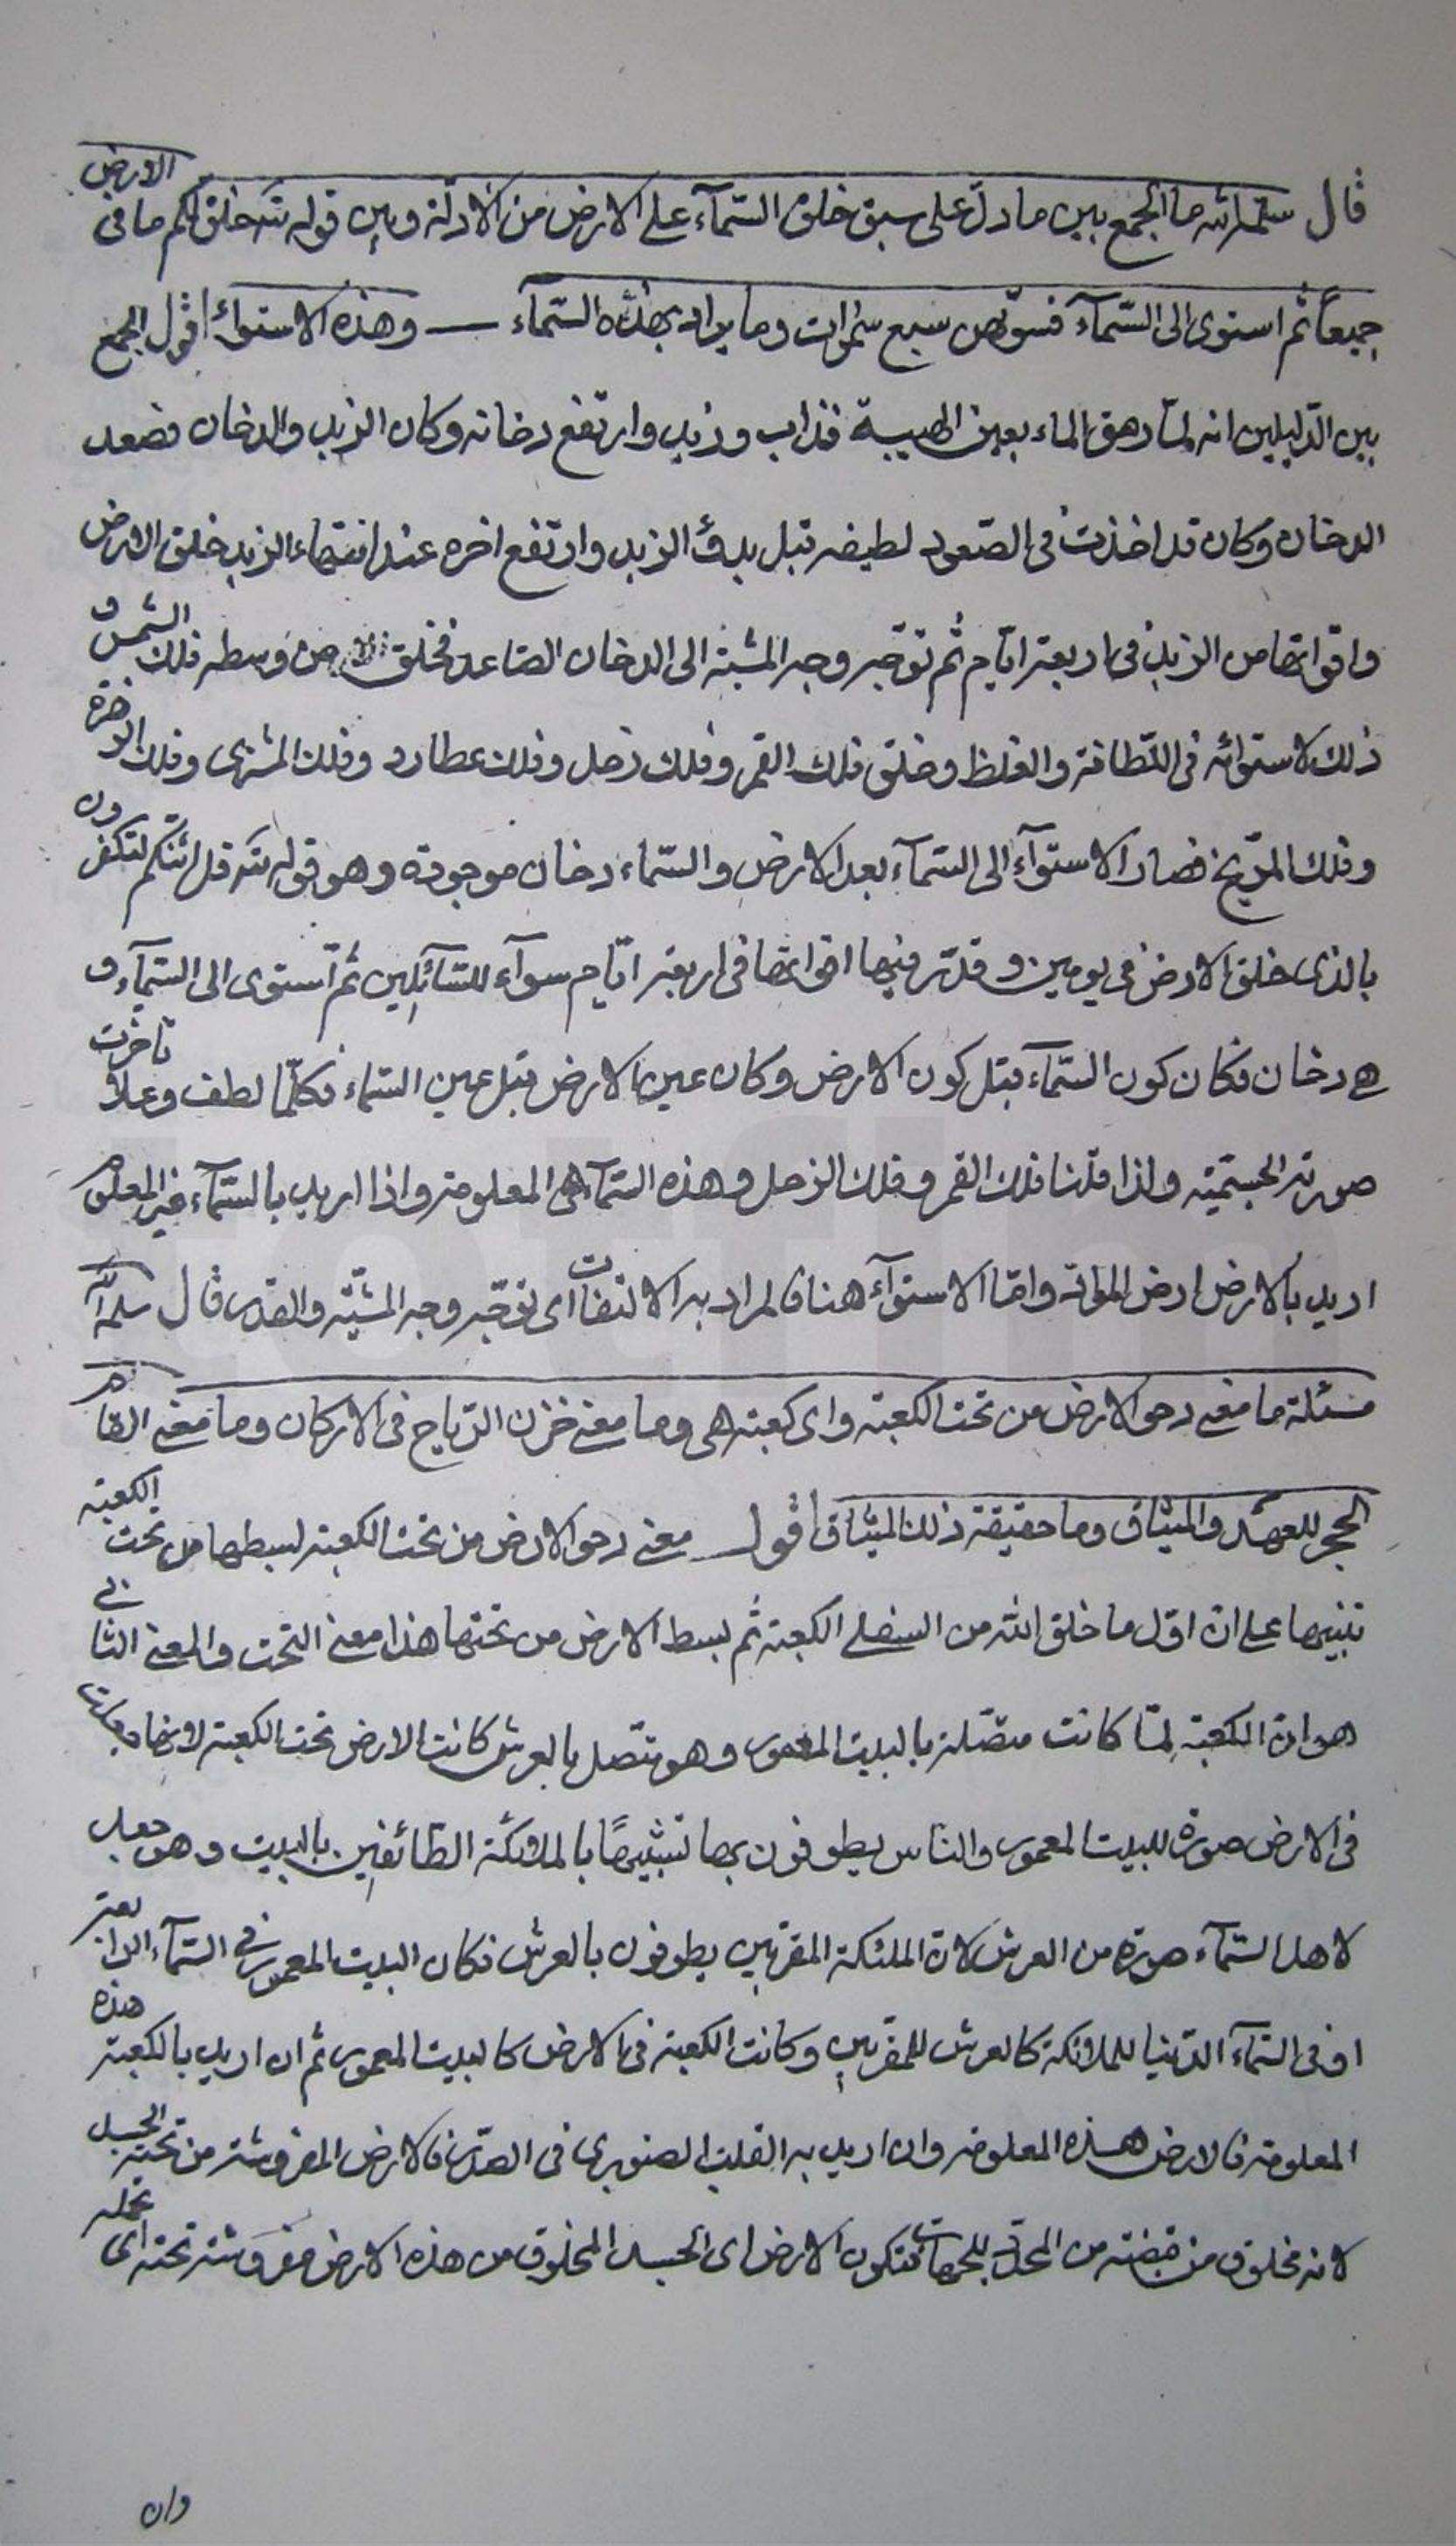 قال سلمه الله ما الجمع بين ما دلّ على سبق خلق السّمآء على الارض من الادلّة وبين قوله تعالى خلق لكم ما في الارض
جميعاً ثم استوى الى السّمآء فسوّيهن سبع سموات وما يراد بهذه السّمآء وهذه الاستواء اقول الجمع
بين الدّليلين انه لمّا رمق الماء بعين الهيبة فذاب وزبد وارتفع دخانه وكان الزبد والدخان فصعد
الدخان وكان قد اخذت في الصّعود لطيفه قبل بدؤ الزبد وارتفع اخره عند انتهاء الزبد خلق الارض
واقواتها من الزبد في اربعة ايّام ثم توجّه وجه المشية الى الدخان الصاعد فخلق من وسطه فلك الشمس و
ذلك لاستوائه في اللّطافة والغلظ وخلق فلك القمر وفلك زحل وفلك عطارد وفلك المشترى وفلك الزهرة
وفلك المرّيخ فصار الاستوآء الى السّمآء بعد الارض والسّماء دخان موجودة وهو قوله تعالى قل ائنكم لتكفرون
بالذى خلق الارض في يومين وقدّر فيها اقواتها في اربعة ايّام سوآء للسّآئلين ثم استوى الى السّمآء و
هي دخان فكان كون السّمآء قبل كون الارض وكان عين الارض قبل عين السّماء فكلّما لطف وعلا تاخّرت
صورته الجسميّة ولذا قلنا فلك القمر وفلك الزحل وهذه السّمآء هي المعلومة واذا اريد بالسّمآء غير المعلومة
اريد بالارض ارض الموات وامّا الاستوآء هنا فالمراد به الالتفات اى توجّه وجه المشيّة والقدر قال سلمه الله
مسئلة ما معنى دحو الارض من تحت الكعبة واى كعبة هي وما معنى خزن الرّياح في الاركان وما معنى القام
الحجر للعهد والميثاق وما حقيقة ذلك الميثاق اقول معنى دحو الارض من تحت الكعبة بسطها من تحت الكعبة
تنبيها على انّ اوّل ما خلق الله من السفلى الكعبة ثم بسط الارض من تحتها هذا معنى التحت والمعنى الثاني
هو انّ الكعبة لمّا كانت متّصلة بالبيت المعمور وهو متّصل بالعرش كانت الارض تحت الكعبة لانها جعلت
في الارض صورة للبيت المعمور والناس يطوفون بها تشبيهًا بالملائكة الطّائفين بالبيت وهو جعل
لاهل السّمآء صورة من العرش لانّ الملئكة المقرّبين يطوفون بالعرش فكان البيت المعمور في السّمآء الرابعة
او في السّمآء الدّنيا للملائكة كالعرش للمقرّبين وكانت الكعبة في الارض كالبيت المعمور ثم ان اريد بالكعبة هذه
المعلومة فالارض هذه المعلومة وان اريد به القلب الصنوبرى في الصّدر فالارض المفروشة من تحته الجسد
لانه مخلوق من قبضة من المحدّد للجهات فتكون الارض اى الجسد المخلوق من هذه الارض مفروشة تحته اى تحمله
وان